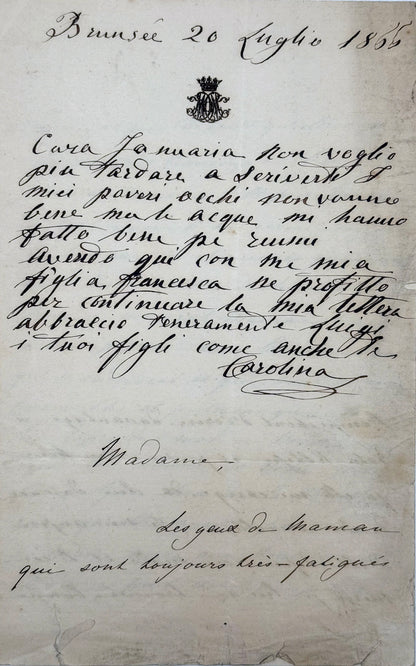 Brunsée 20 Luglio 1866
Cara Januaria non voglio
piu tardare a scriverte I
miei poveri occhi non vanno
bene ma le acque mi hanno
fatto bene pe reumi
Avendo qui con me mia
figlia francesca ne profitto
per continuare la mia lettera
abbraccio teneramente Luigi
i tuoi figli come anche te
Carolina
Madame,
Les yeux de Maman
qui sont toujours très-fatigués